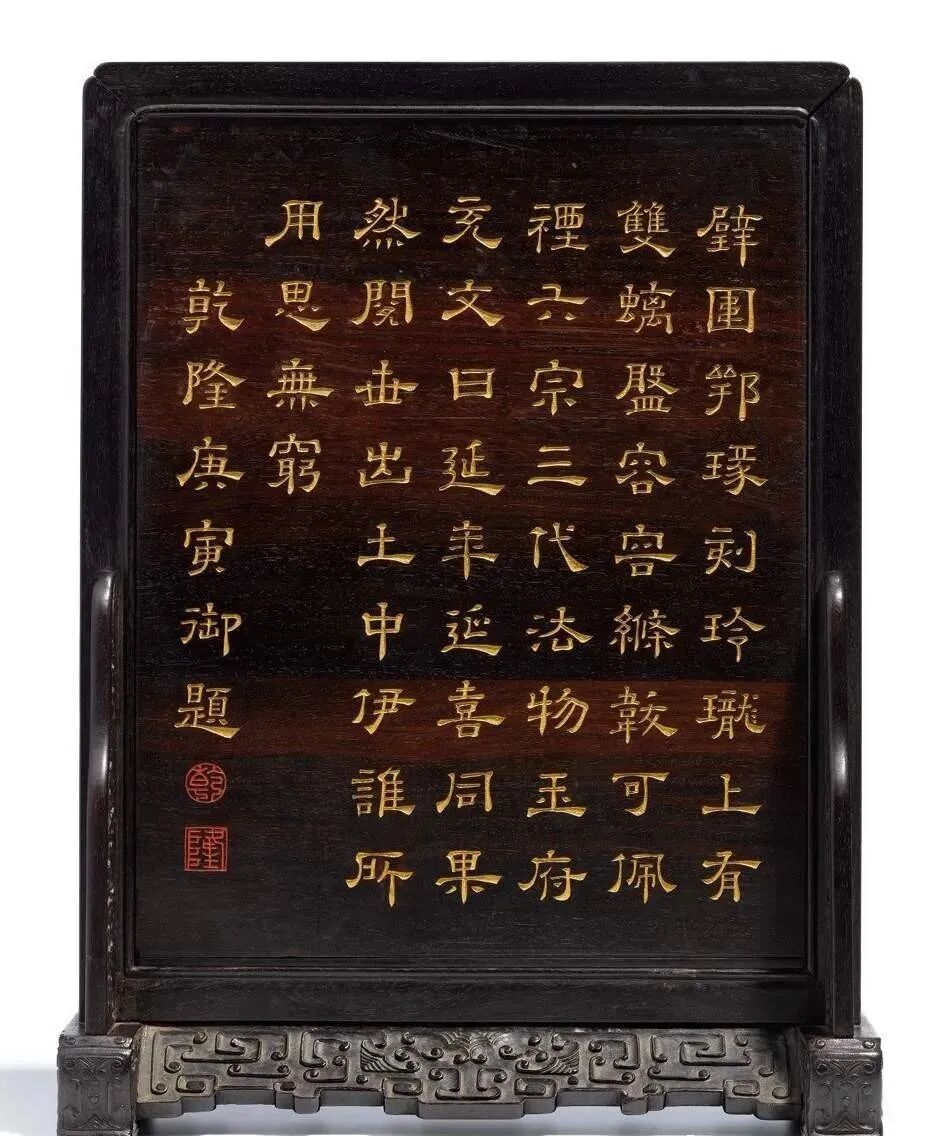 璧圍琢刻玲瓏上有
雙螭盤容容絛韍可佩
禋六宗三代法物玉府
充文曰延年延喜同果
然閱世出土中伊誰所
用思無窮
乾隆庚寅御題
乾
隆